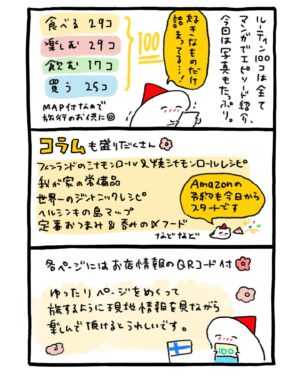 ルーティン100コは全て
マンガでエピソード紹介、
今回は写真もたっぷり。
好きなものだけ
詰まってる…!
100
食べる 29コ
楽しむ 29コ
飲む 17コ
買う 25コ
MAP付きなので
旅行のお供に
コラムも盛りだくさん
フィンランドのシナモンロール&焼シナモンロールレシピ
我が家の常備品
世界一のジントニックレシピ
ヘルシンキの島マップ
定番おつまみ&呑みの〆フード
などなど
Amazonの
予約も今日から
スタートです
各ページにはお店情報のQRコード付
ゆったりページをめくって
旅するように現地情報を見ながら
楽しんで頂けるとうれしいです。
100